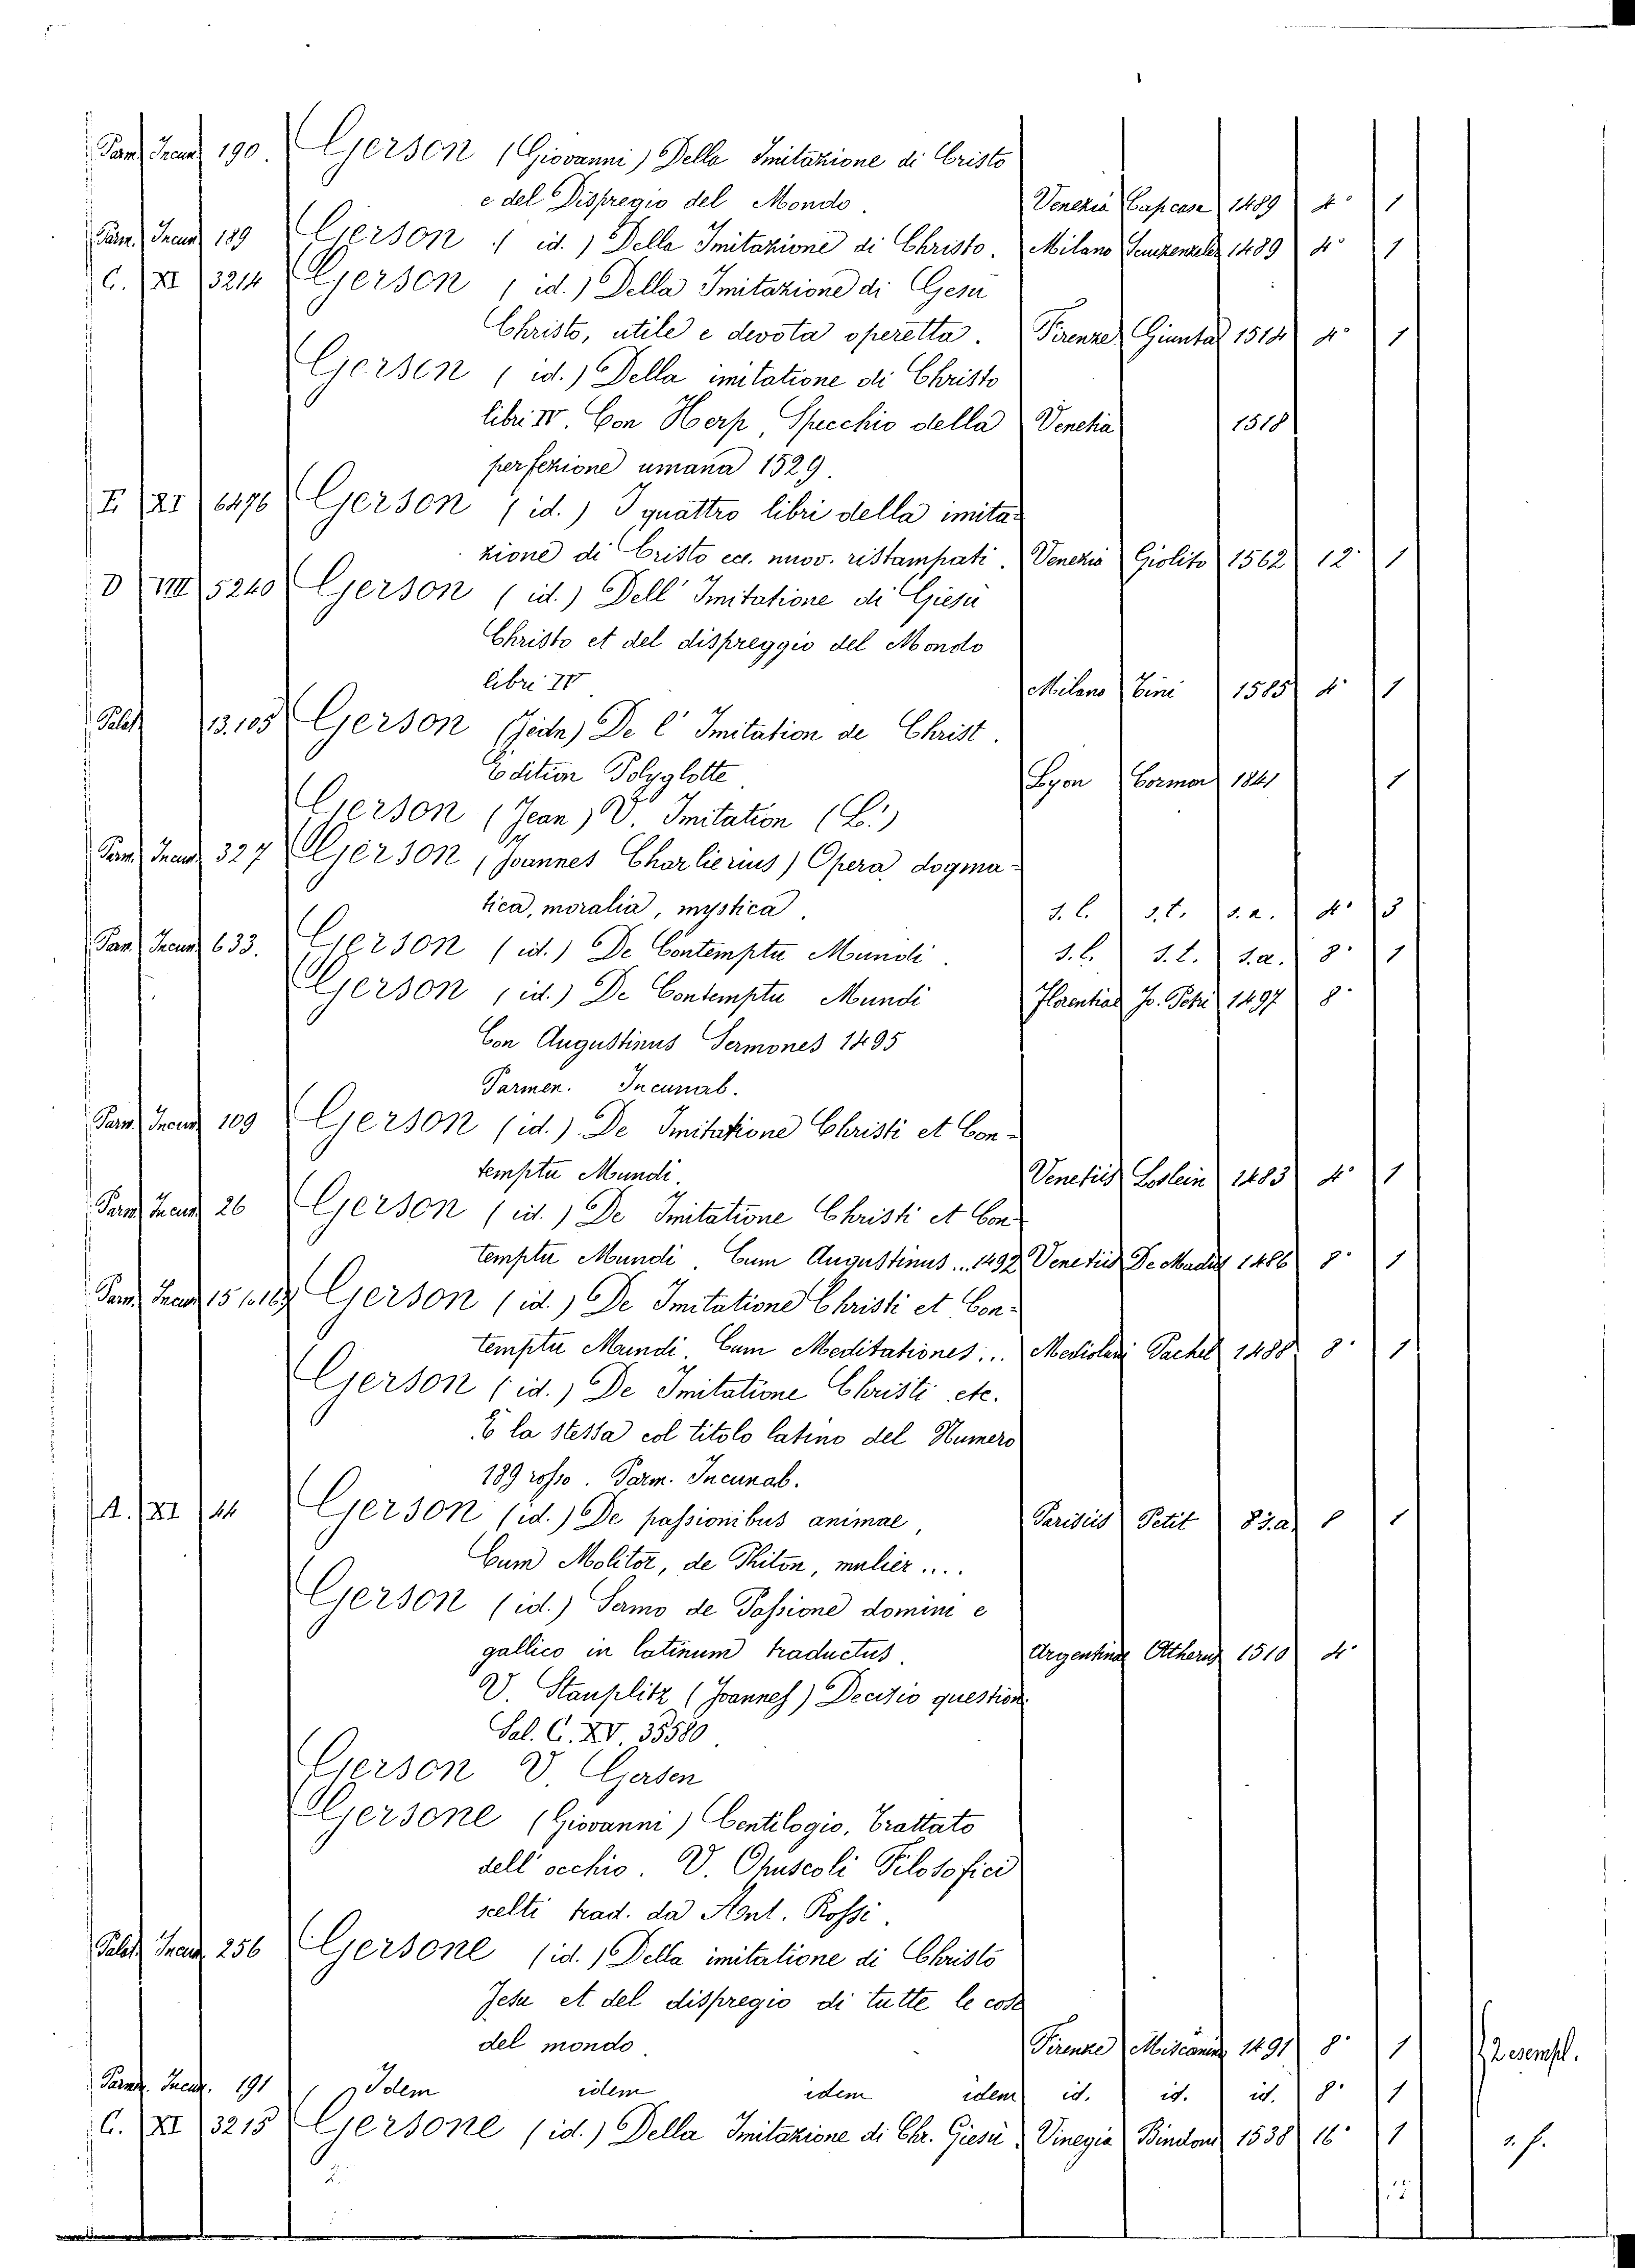 Parm. Incun. 190. Gerson (Giovanni) Della Imitazione di Cristo
e del Dispregio del Mondo. Venezia Capcase 1489 4° 1
Parm. Incun. 189 Gerson (id.) Della Imitazione di Christo. Milano Scinzenzeler 1489 4° 1
C. XI 3214 Gerson (id.) Della Imitazione di Gesu
Christo, utile e devota operetta. Firenze Giuntas 1514 4° 1
Gerson (id.) Della imitatione di Christo
libri IV. Con Herp, Specchio della Venetia 1518
perfezione umana 1529.
I XI 6476 Gerson (id.) I quattro libri della imita-
zione di Cristo ecc. nuov. ristampati. Venezia Giolito 1562 12° 1
D VIII 5240 Gerson (id.) Dell' Imitatione di Giesu
Christo et del dispreggio del Mondo
libri IV Milano Cini 1585 4° 1
Palat. 13.105 Gerson (Jean) De l' Imitation de Christ.
Edition Polyglotte Lyon Cormon 1841 1
Gerson (Jean) V. Imitation (L.')
Parm. Incun. 327 Gerson (Joannes Charlierius) Opera dogma-
tica, moralia, mystica. s. l. s. t. s. a. 4° 3
Parm. Incun. 633. Gerson (id.) De Contemptu Mundi. s. l. s. t. s. a. 8° 1
Gerson (id.) De Contemptu Mundi Florentiae Jo. Petri 1497 8°
Con Augustinus Sermones 1495
Parmen. Incunab.
Parm. Incun. 109 Gerson (id.) De Imitatione Christi et Con-
temptu Mundi. Venetiis Loslein 1483 4° 1
Parm. Incun. 26 Gerson (id.) De Imitatione Christi et Con-
temptu Mundi. Cum Augustinus... 1492 Venetiis De Madiis 1486 8° 1
Parm. Incun. Gerson (id.) De Imitatione Christi et Con-
temptu Mundi. Cum Meditationes... Mediolani Pachel 1488 8° 1
Gerson (id.) De Imitatione Christi etc.
È la stessa col titolo latino del Numero
189 rosso. Parm. Incunab.
A. XI 44 Gerson (id.) De passionibus animae, Parisiis Petit s.a. 8 1
Cum Molitor, de Phiton, mulier....
Gerson (id.) Sermo de Passione domini e
gallico in latinum traductus. Argentinae 1510 4°
V. Stauplitz (Joannes) Decisio question.
Sal. C. XV. 35580.
Gerson V. Gersen
Gersone (Giovanni) Centilogio, Trattato
dell' occhio. V. Opuscoli Filosofici
scelti trad. da Ant. Rossi.
Palat. Incun. 256 Gersone (id.) Della imitatione di Christo
Jesu et del dispregio di tutte le cose
del mondo. Firenze Miscomini 1491 8° 1 2 esempl.
Parm. Incun. 191 Idem idem idem idem id. id. id. 8° 1
C. XI 3215 Gersone (id.) Della Imitazione di Chr. Giesù Vinegia Bindoni 1538 16° 1 2. f.